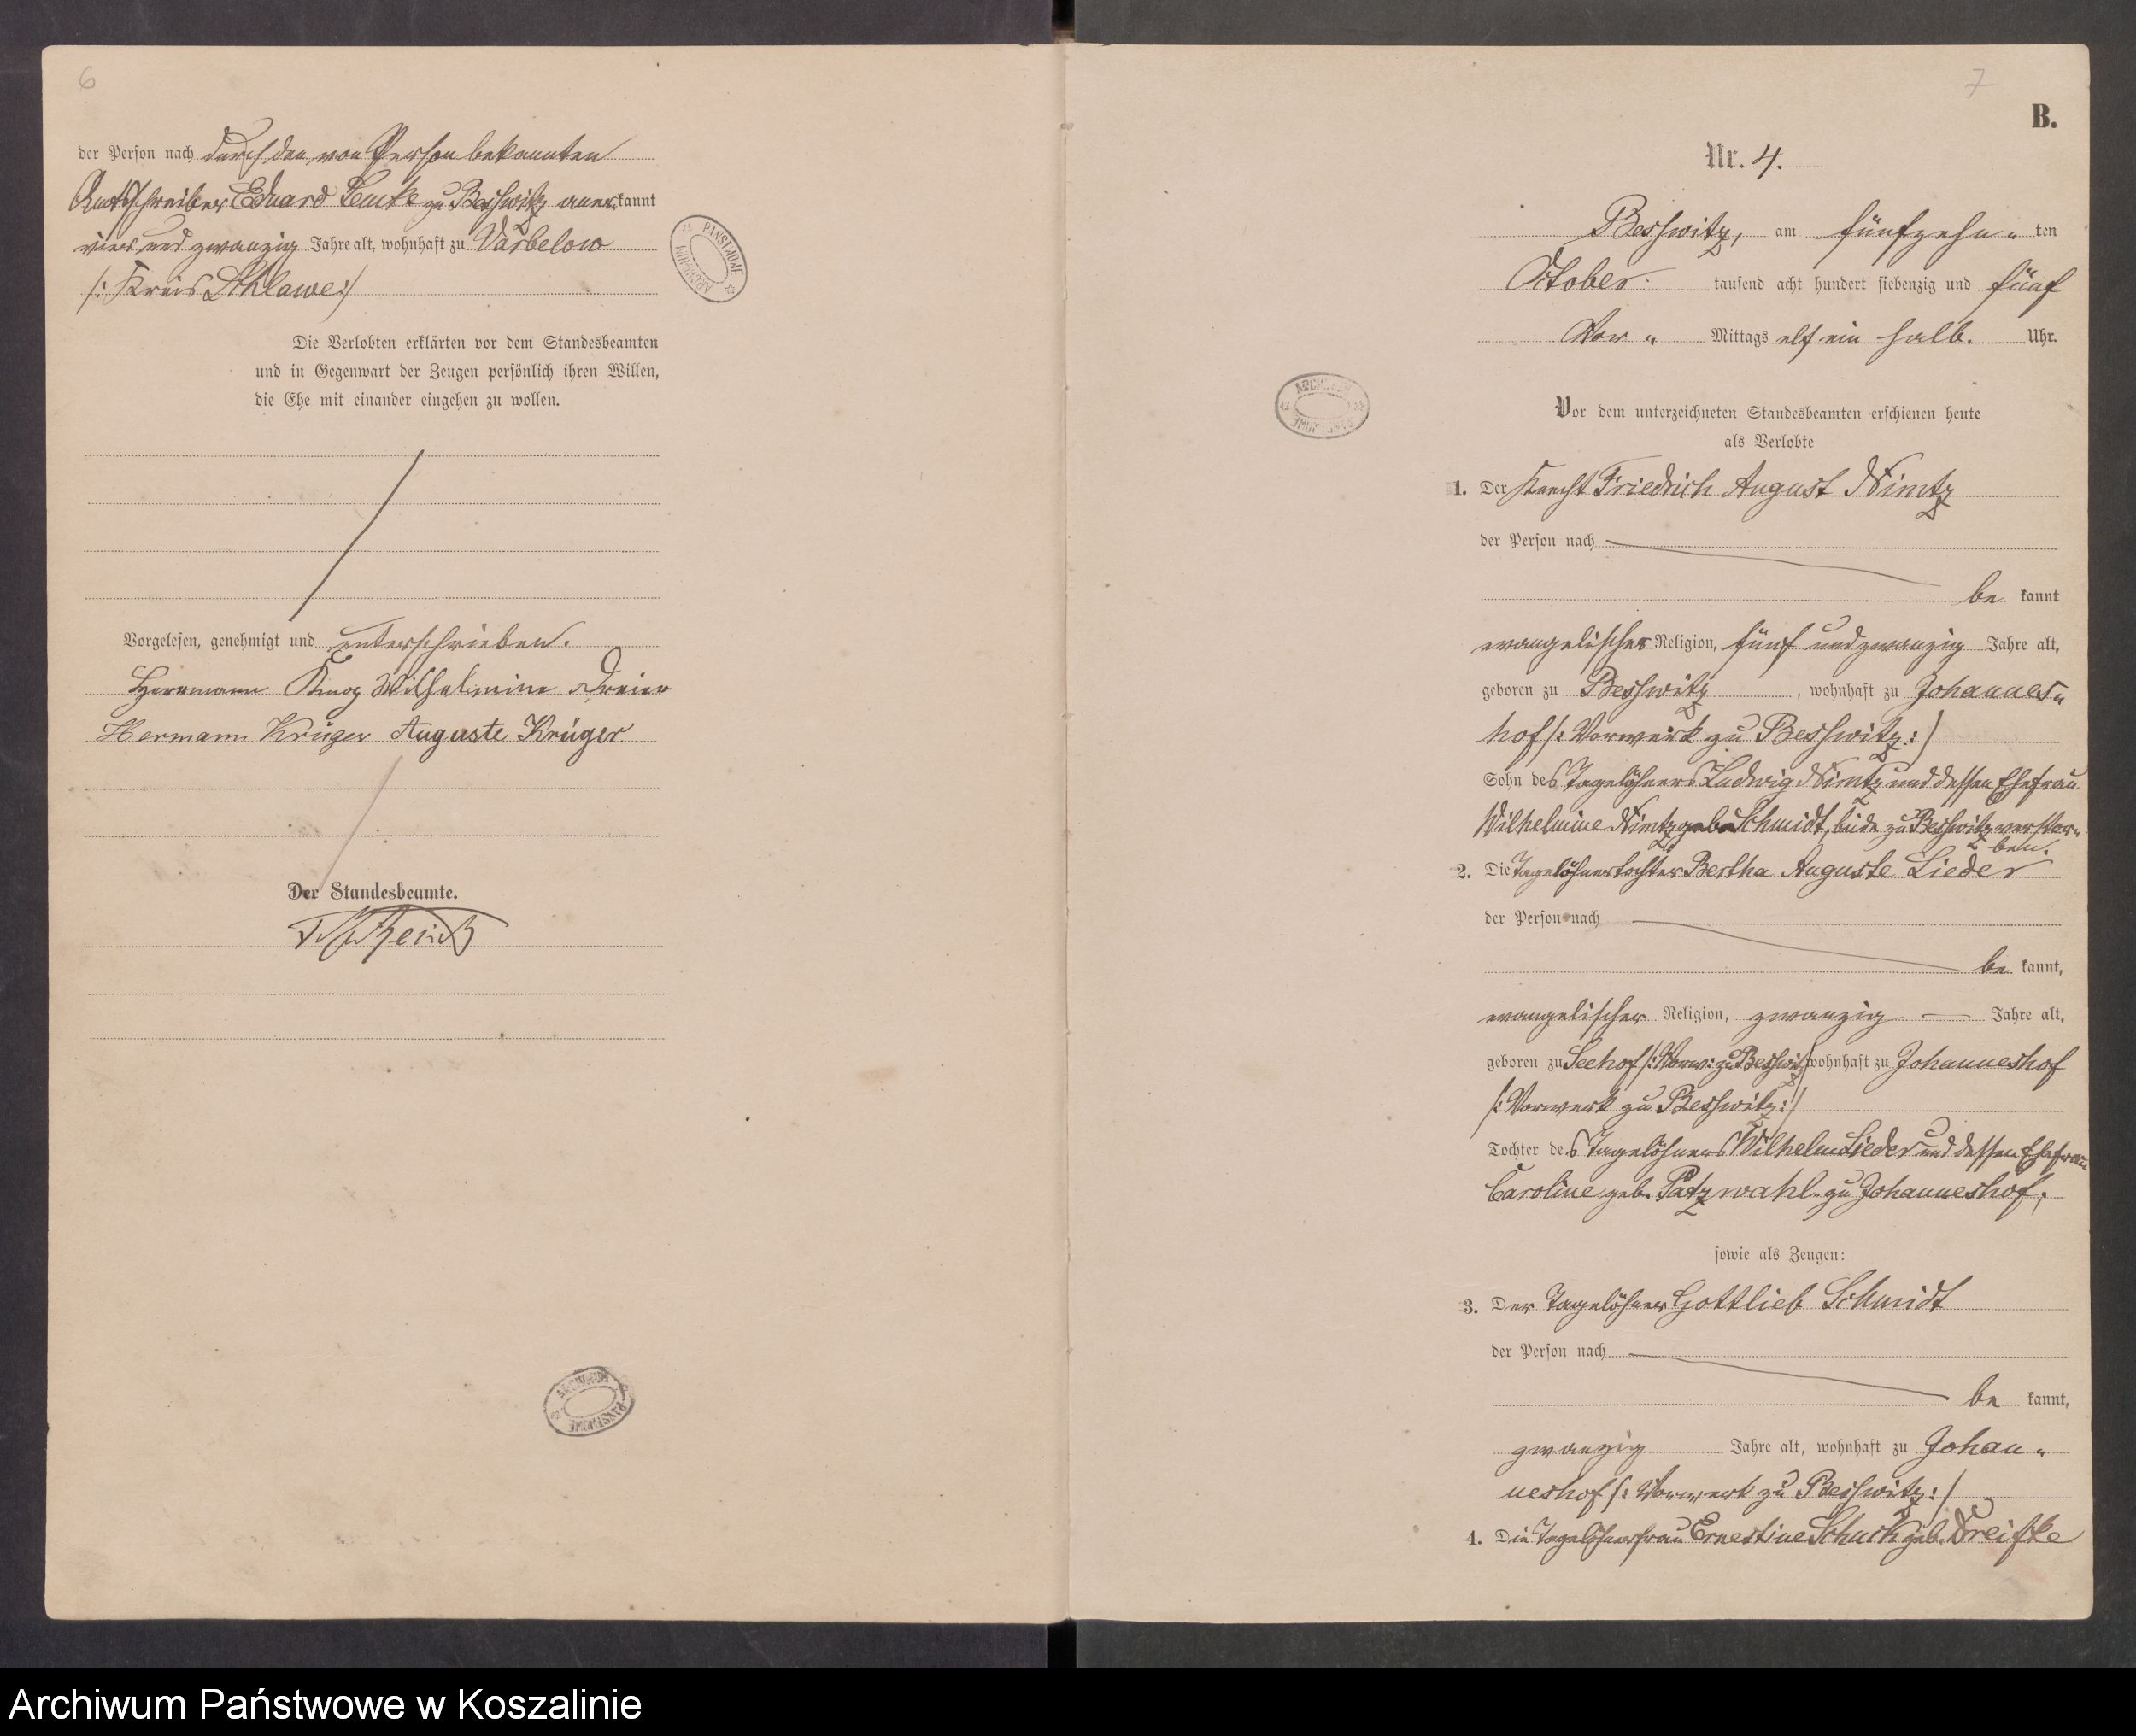 6
der Person nach durch den von Person bekannten
Amtsschreiber Eduard Lemke zu Besswitz anerkannt
vier und zwanzig Jahre alt, wohnhaft zu Varbelow
/: Kreis Schlawe :/
PANSTWOWE ARCHIWUM
Die Verlobten erklärten vor dem Standesbeamten
und in Gegenwart der Zeugen persönlich ihren Willen,
die Ehe mit einander eingehen zu wollen.
Vorgelesen, genehmigt und unterschrieben.
Herrmann Wilhelmine Dreier
Hermann Krüger Auguste Krüger
Der Standesbeamte.
ARCHIWUM PANSTWOWE
7
B.
Nr. 4.
Besswitz, am fünfzehn„ ten
October tausend acht hundert siebenzig und fünf
Vor „ Mittags elf ein halb. Uhr.
ARCHIWUM PANSTWOWE
Vor dem unterzeichneten Standesbeamten erschienen heute
als Verlobte
1. Der Knecht Friedrich August Nimtz
der Person nach
be kannt
evangelischer Religion, fünf und zwanzig Jahre alt,
geboren zu Besswitz, wohnhaft zu Johannes„
hof /: Vorwerk zu Besswitz :/
Sohn des Tagelöhners Ludwig Nimtz und dessen Ehefrau
Wilhelmine Nimtz geb. Schmidt, beide zu Besswitz verstor„
ben.
2. Die Tagelöhnertochter Bertha Auguste Lieder
der Person nach
be kannt,
evangelischer Religion, zwanzig — Jahre alt,
geboren zu Seehof /: Vorw: zu Besswitz :/ wohnhaft zu Johanneshof
/: Vorwerk zu Besswitz :/
Tochter des Tagelöhners Wilhelm Lieder und dessen Ehefrau
Caroline geb. Patzwahl zu Johanneshof,
sowie als Zeugen:
3. Der Tagelöhner Gottlieb Schmidt
der Person nach
be kannt,
zwanzig Jahre alt, wohnhaft zu Johan„
neshof /: Vorwerk zu Besswitz :/
4. Die Tagelöhnerfrau Ernestine geb. Dreifke
Archiwum Państwowe w Koszalinie